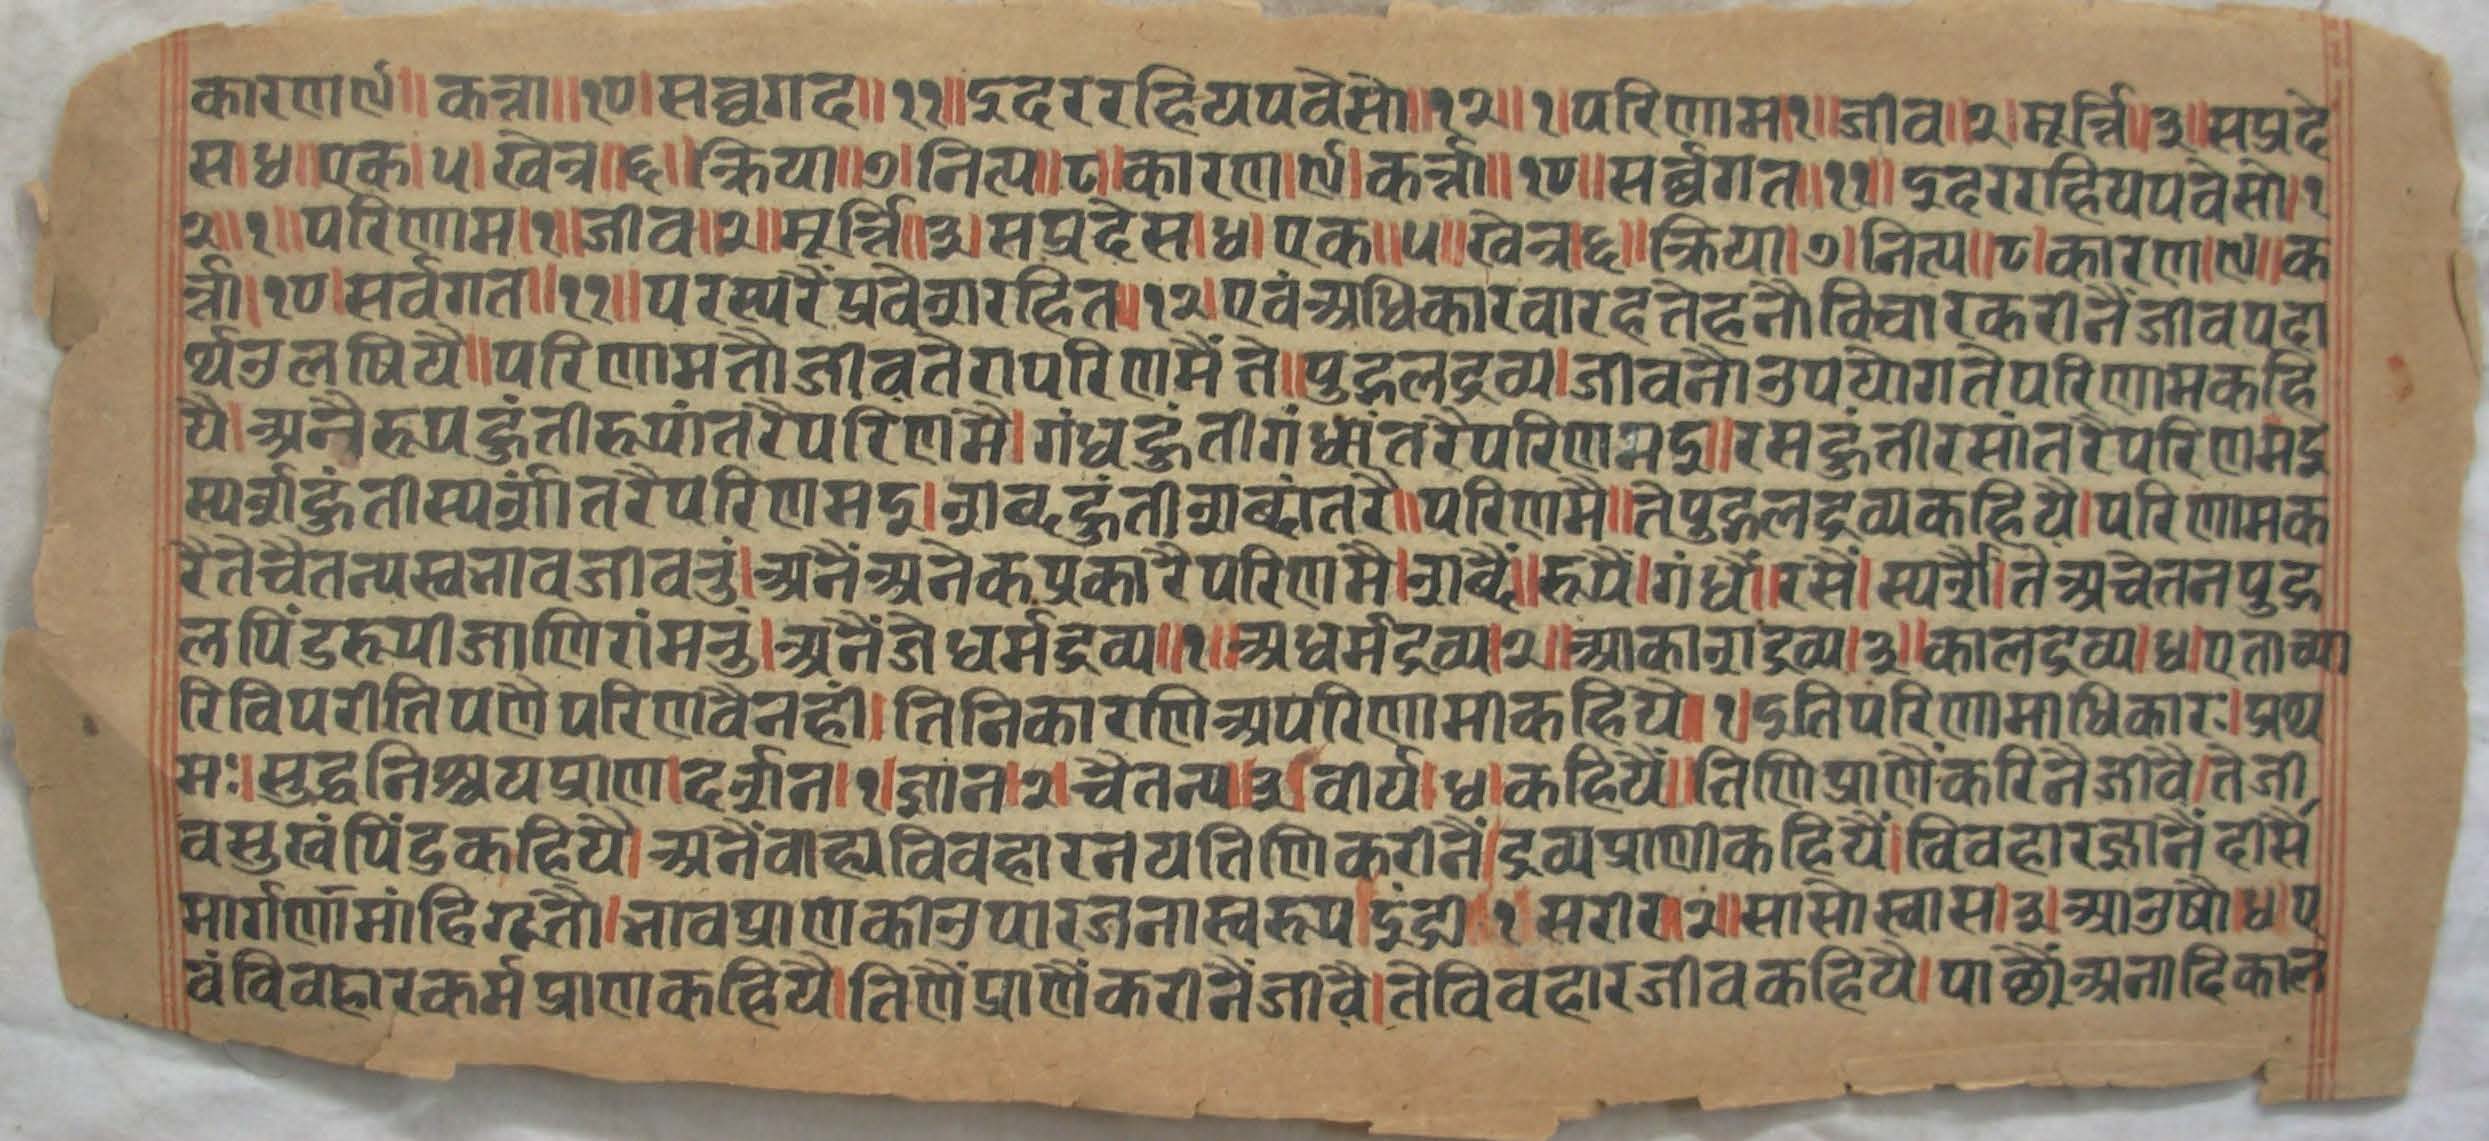 कारण९॥ कत्ता॥१०।सव्वगद॥११॥इदररहियपवेसो॥१२॥१।परिणाम।१॥जीव।२।मूर्त्ति॥३॥सप्रदे
स।४॥एक।५।खेत्र॥६॥क्रिया॥७।नित्य॥८।कारण।९।कर्त्ता॥१०॥सर्व्वगत॥११॥इदररहियपवेसो।१
२॥१॥परिणाम।१॥जीव।२॥मूर्त्ति॥३।सप्रदेस।४।एक॥५॥खेत्र।६॥क्रिया।७।नित्य॥८।कारण।९॥क
र्त्ता।१०।सर्वगत॥११॥परस्परैंप्रवेशरहित॥१२।एवंअधिकारबारहतेहनौविचारकरीनैंजीवपदा
र्थनुलषियै॥परिणामतौजीवतेरापरिणमैं ते॥पुद्गलद्रव्य।जीवनौउपयोगतेपरिणामकहि
यै।अनैरूपहुंतीरूपांतरैपरिणमै।गंधहुंतीगंधांतरैपरिणमइ॥रसहुंतीरसांतरैपरिणमइ
स्पर्शहुंतीस्पर्शांतरैपरिणमइ।शब्दहुंतीशब्दांतरै॥परिणमै॥तेपुद्गलद्रव्यकहियै।परिणामक
रैतेचैतन्यस्वभावजीवनुं।अनैंअनेकप्रकारैपरिणमै।शब्दैं॥रूपैं।गंधैं॥रसैं।स्पर्शैं।तेअचेतनपुद्ग
लपिंडरूपीजाणिरांमनुं।अनैंजेधर्मद्रव्य॥१॥अधर्मद्रव्य।२॥आकाशद्रव्य।३॥कालद्रव्य।४।एताच्या
रिविपरीतिपणेपरिणवैनहीं।तिनिकारणिअपरिणामीकहियै।१।इतिपरिणामाधिकारः।प्रथ
मः।सुद्धनिश्चयप्राण।दर्शन।१।ज्ञान।२।चैतन्य।३।वीर्य।४।कहियैं॥तिणिप्राणैंकरिनैजीवै।तेजी
वसुखंपिंडकहियै।अनैंवाह्यविवहारनयतिणिकरीनैं।द्रव्यप्राणीकहियैं।विवहारज्ञानैंदीसै
मार्गणामांहिगतौ।भावप्राणकीउपारजनास्वरूप।इंद्री।१सरीर।२॥सासोस्वास।३।आउषौ।४।ए
वंविवहारकर्मप्राणकहियै।तिणैंप्राणैंकरीनैंजीवै।तेविवहारजीवकहियै।पाछैं।अनादिकाल